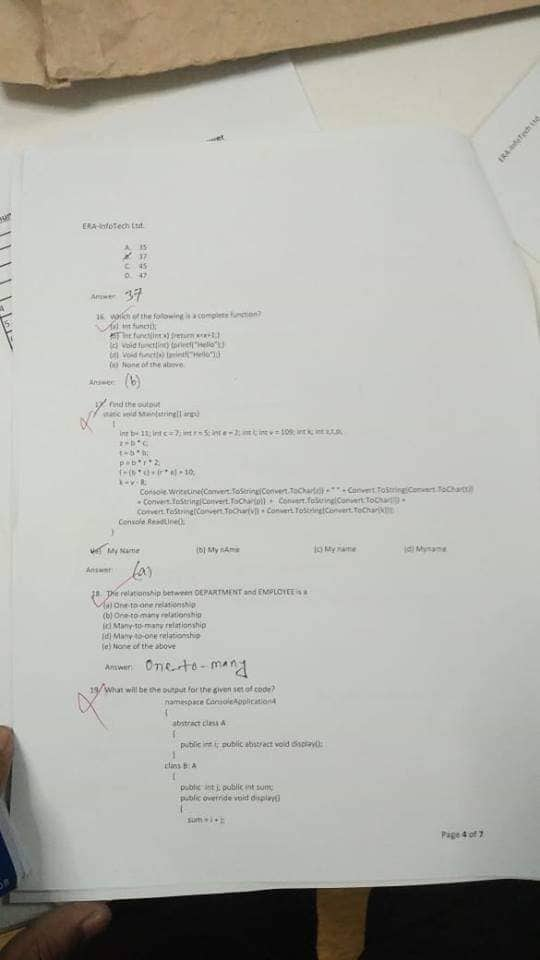 ERA-InfoTech Ltd.
A. 35
B. 37
C. 45
D. 47
Answer: 37
16. Which of the following is a complete function?
(a) Int funct();
(b) Int funct(int x) {return x=x+1;}
(c) Void funct(int) {printf("Hello");}
(d) Void funct(x) {printf("Hello");}
(e) None of the above.
Answer: (b)
17. Find the output
static void Main(string[] args)
{
int b= 11; int c = 7; int r = 5; int e = 2; int l; int v = 109; int k; int z,t,p;
z = b * c;
t = b * b;
p = b * r * 2;
l = (b * c) + (r * e) + 10;
k = v - 8;
Console.WriteLine(Convert.ToString(Convert.ToChar(z)) + " " + Convert.ToString(Convert.ToChar(t))
+ Convert.ToString(Convert.ToChar(p)) + Convert.ToString(Convert.ToChar(l)) +
Convert.ToString(Convert.ToChar(v)) + Convert.ToString(Convert.ToChar(k)));
Console.ReadLine();
}
(a) My Name (b) My nAme (c) My name (d) Myname
Answer: (a)
18. The relationship between DEPARTMENT and EMPLOYEE is a
(a) One-to-one relationship
(b) One-to-many relationship
(c) Many-to-many relationship
(d) Many-to-one relationship
(e) None of the above
Answer: One-to-many
19. What will be the output for the given set of code?
namespace ConsoleApplication4
{
abstract class A
{
public int i; public abstract void display();
}
class B: A
{
public int j; public int sum;
public override void display()
{
sum = i + j;
Page 4 of 7
ERA-InfoTech Ltd